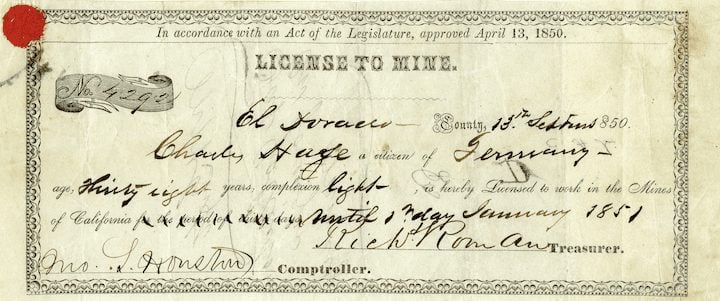 In accordance with an Act of the Legislature, approved April 13, 1850.
LICENSE TO MINE.
No. 4292
El Dorado County, 13th 1850.
Charles a citizen of Germany
age, Thirty eight years, complexion light, is hereby Licensed to work in the Mines
of California for the period of until 1st day January 1851
Richd. Roman Treasurer.
Jno. S. Houston Comptroller.